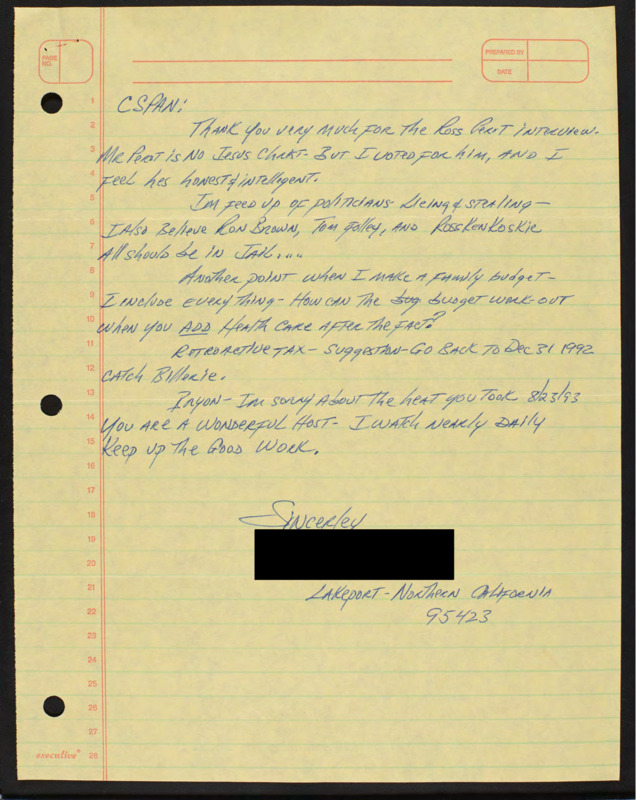 PAGE
NO.
PREPARED BY
DATE
1
2
3
4
5
6
7
8
9
10
11
12
13
14
15
16
17
18
19
20
21
22
23
24
25
26
27
28
CSPAN:
Thank you very much for the Ross Perot interview.
Mr Perot is no Jesus Christ- But I voted for him, and I
feel hes honest & intelligent.
Im feed up of politicians- Lieing & stealing -
I Also Believe Ron Brown, Tom folley, and RossKenKoskie
All should be in Jail....
Another point when I make a family budget-
I enclude everything- How can the bug budget work-out
when you ADD Health Care after the fact?
Retroactive tax - suggestion- Go Back to Dec 31 1992
catch Billerie.
Bryon- Im sorry about the heat you took 8/23/93
You are a wonderful Host- I watch nearly daily
Keep up the Good Work.
Sincerley
Lakeport - Northern California
95423
executive®